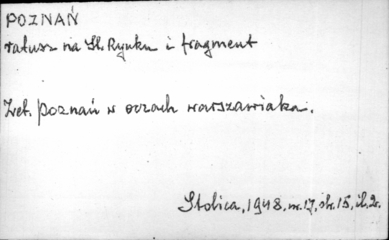 POZNAŃ
ratusz na St. Rynku i fragment
Zet. Poznań w oczach warszawiaka.
Stolica, 1948. nr. 17, str. 15, il. 2.